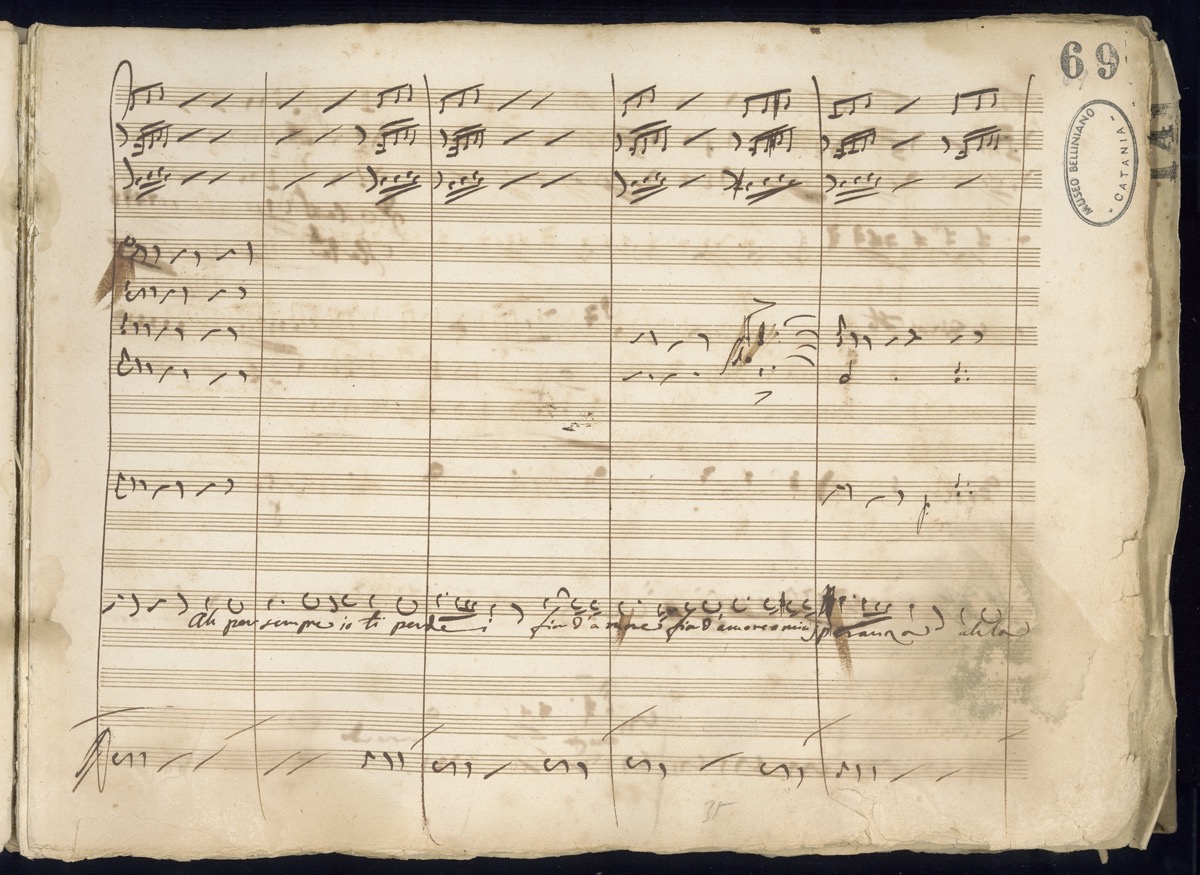 69
MUSEO BELLINIANO
- CATANIA -
141
Ah per sempre io ti perdei fior d'amore fior d'amore o mia speranza ah la
35